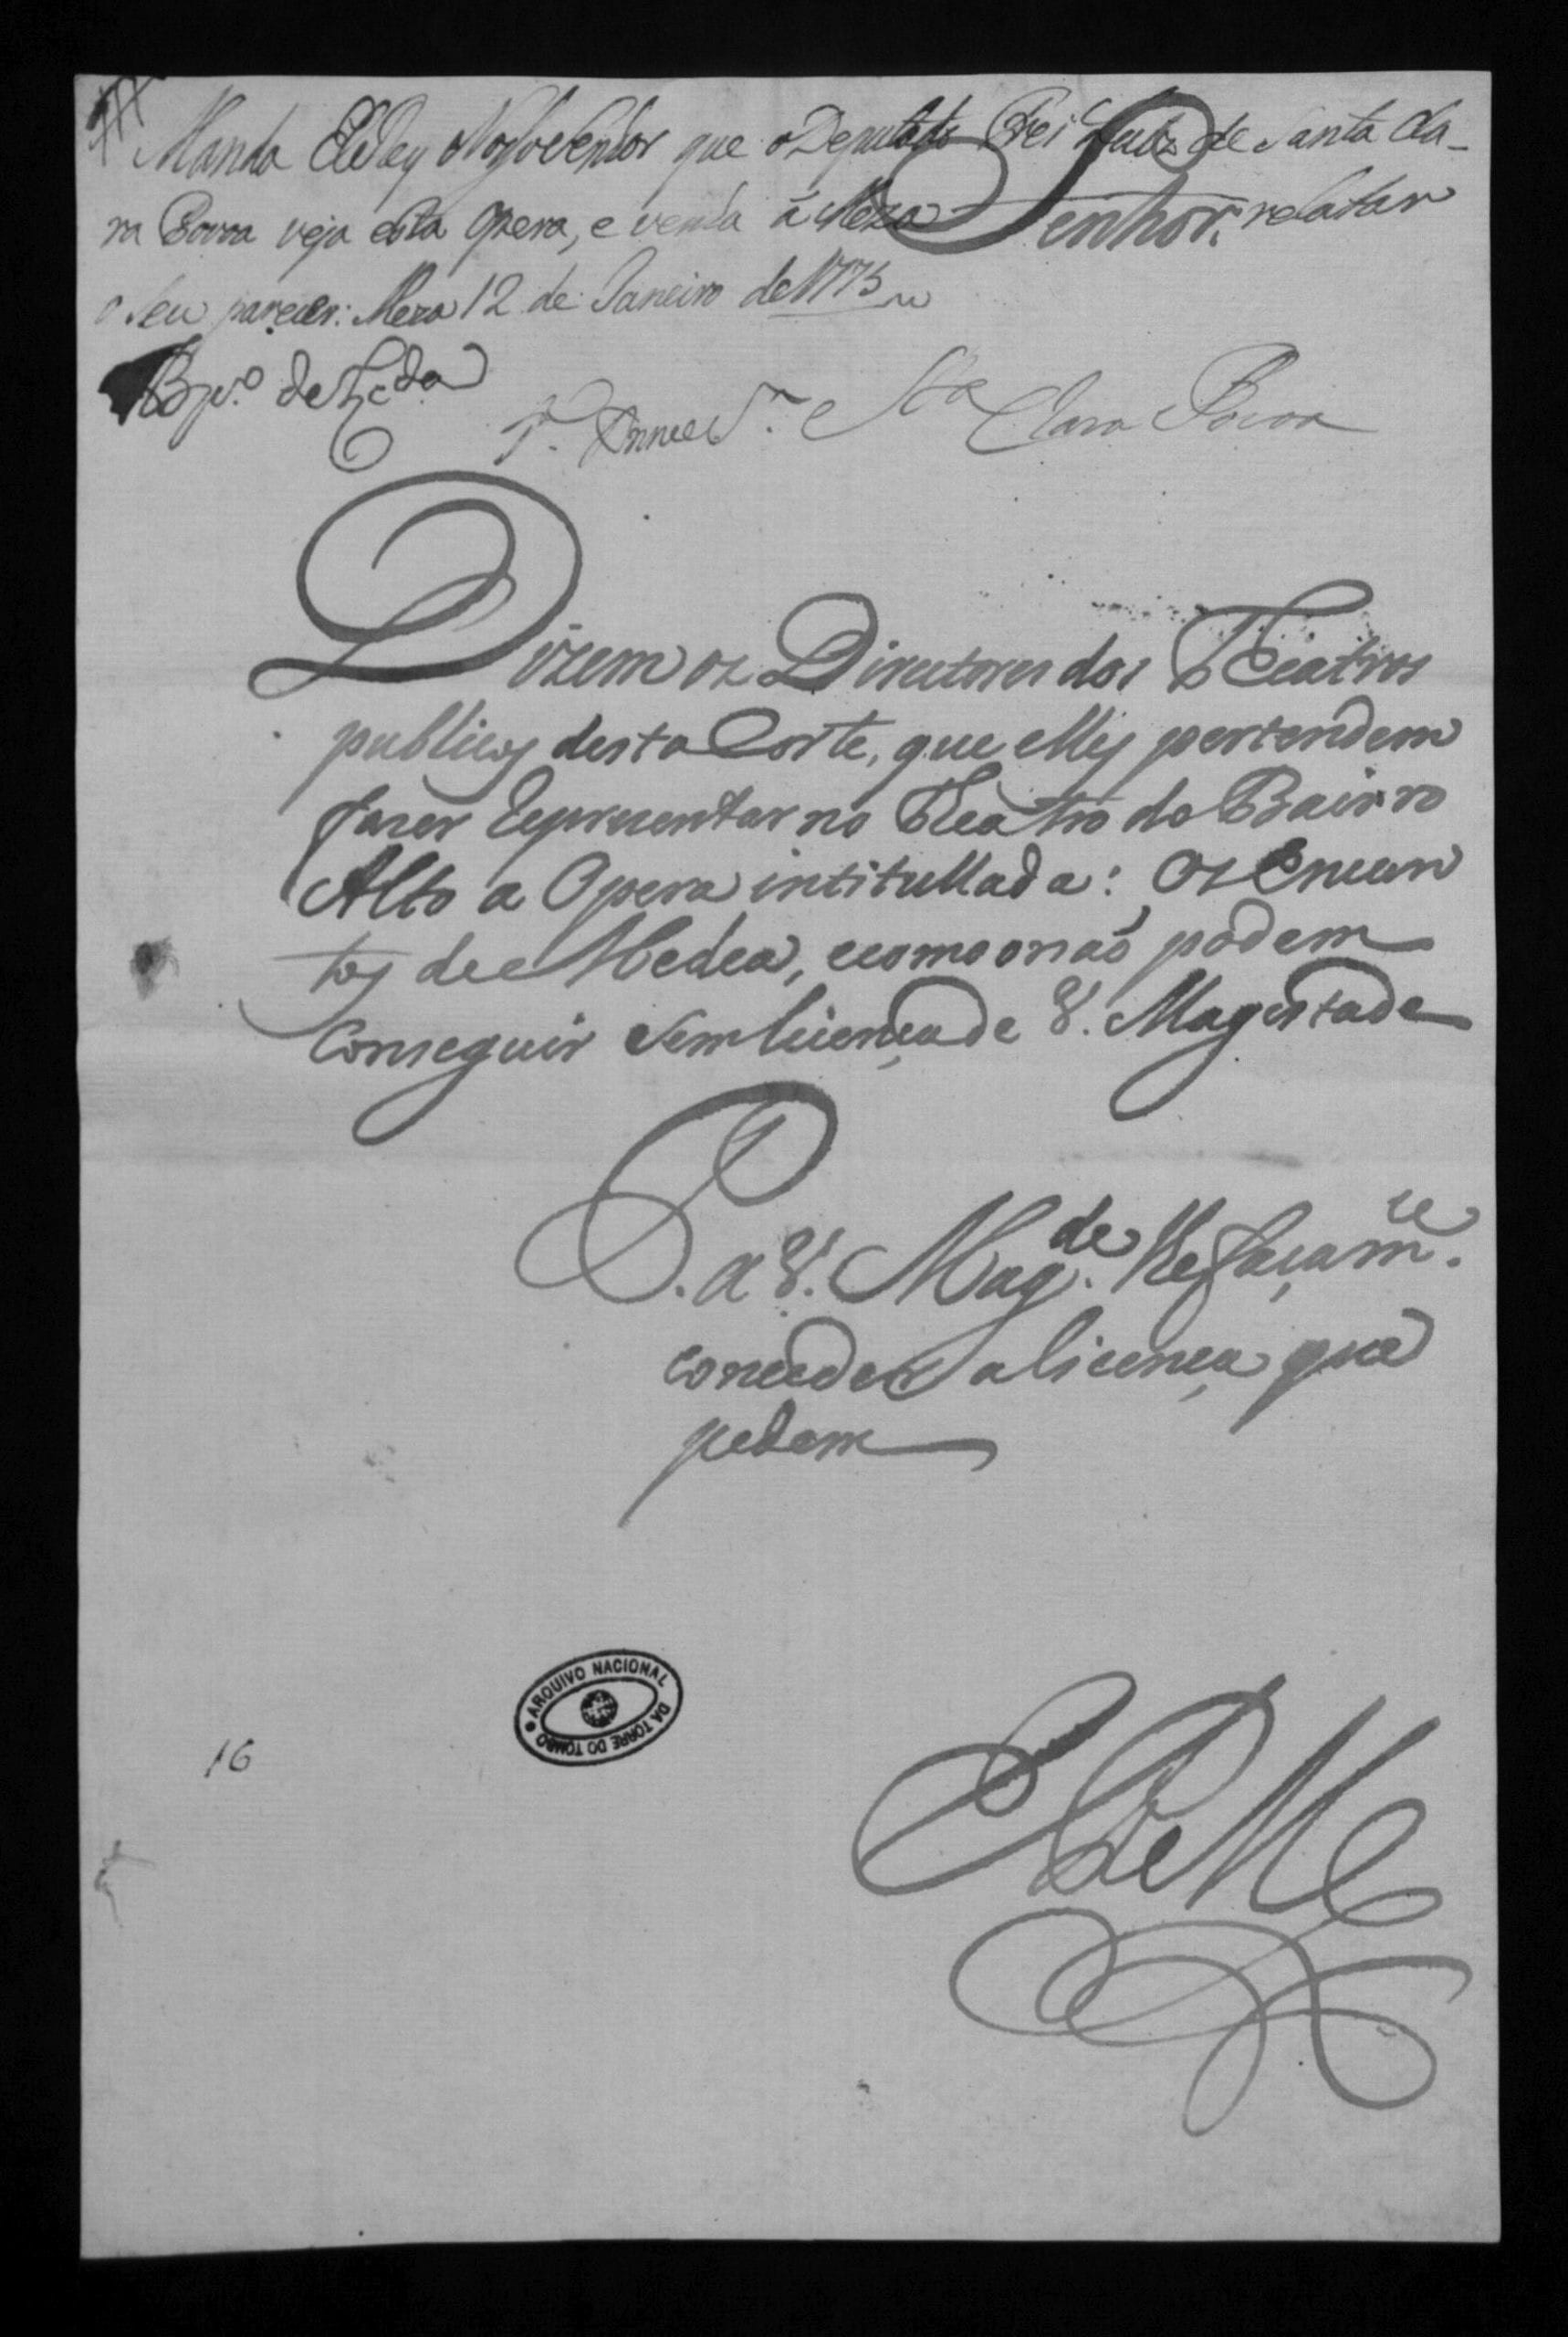 Manda ElRey Nosso Senhor que o Deputado Frei Luiz de Santa Cla-
ra Povoa veja esta Opera, e venha á Meza relatar
o seu parecer: Meza 12 de Janeiro de 1773
Senhor
Sta Clara Povoa
Dizem os Directores dos Theatros
publicos desta Corte, que elles pertendem
fazer Reprezentar no Theatro do Bairro
Alto a Opera intitullada: Os Encan
tos de Medea, e como o não podem
Conseguir sem licença de V. Magestade
P. a V. Magde. lhe faça mce.
conceder a licença que
pedem
E R Mce
16
ARQUIVO NACIONAL DA TORRE DO TOMBO